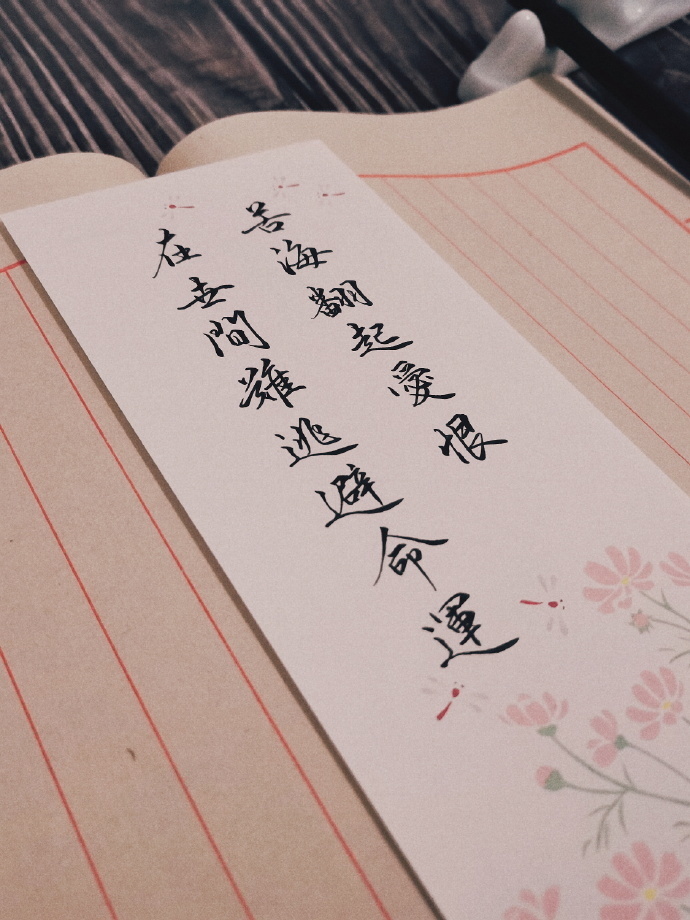 苦海翻起愛恨
在世間難逃避命運